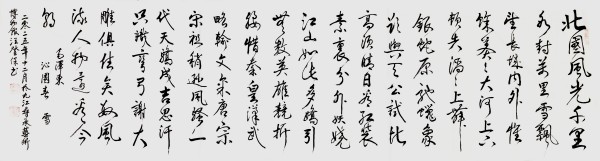 北國風光千里
冰封萬里雪飄
望長城內外惟
餘莽莽大河上下
頓失滔滔山舞
銀蛇原馳蠟象
欲與天公試比
高須晴日看紅裝
素裹分外妖嬈
江山如此多嬌引
無數英雄競折
腰惜秦皇漢武
略輸文采唐宗
宋祖稍遜風騷一
代天驕成吉思汗
只識彎弓射大
雕俱往矣數風
流人物還看今
朝
毛澤東
沁園春 雪
二零二五年十二月於九江藝術
博物館汪書